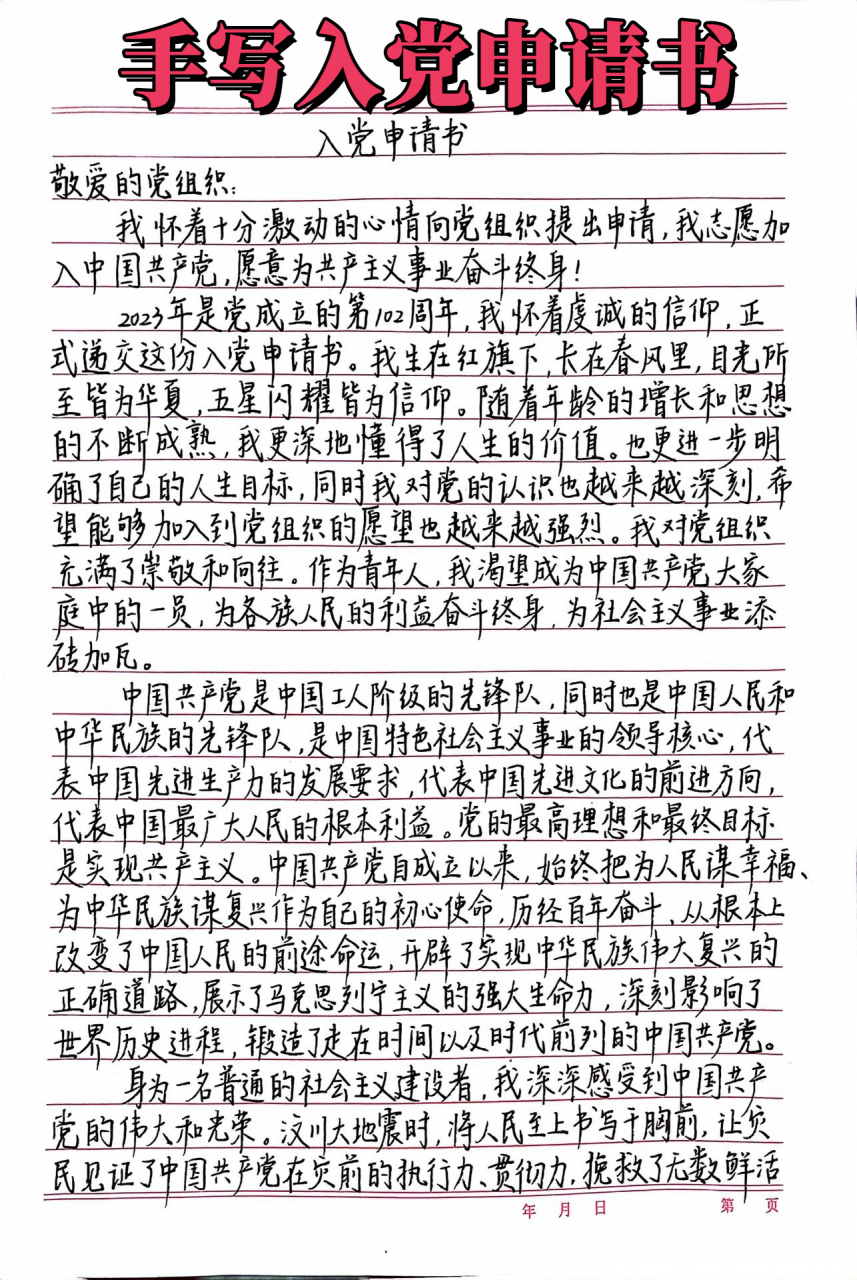 手写入党申请书
入党申请书
敬爱的党组织：
我怀着十分激动的心情向党组织提出申请，我志愿加
入中国共产党，愿意为共产主义事业奋斗终身！
2023年是党成立的第102周年，我怀着虔诚的信仰，正
式递交这份入党申请书。我生在红旗下，长在春风里，目光所
至皆为华夏，五星闪耀皆为信仰。随着年龄的增长和思想
的不断成熟，我更深地懂得了人生的价值。也更进一步明
确了自己的人生目标，同时我对党的认识也越来越深刻，希
望能够加入到党组织的愿望也越来越强烈。我对党组织
充满了崇敬和向往。作为青年人，我渴望成为中国共产党大家
庭中的一员，为各族人民的利益奋斗终身，为社会主义事业添
砖加瓦。
中国共产党是中国工人阶级的先锋队，同时也是中国人民和
中华民族的先锋队，是中国特色社会主义事业的领导核心，代
表中国先进生产力的发展要求，代表中国先进文化的前进方向，
代表中国最广大人民的根本利益。党的最高理想和最终目标
是实现共产主义。中国共产党自成立以来，始终把为人民谋幸福、
为中华民族谋复兴作为自己的初心使命，历经百年奋斗，从根本上
改变了中国人民的前途命运，开辟了实现中华民族伟大复兴的
正确道路，展示了马克思列宁主义的强大生命力，深刻影响了
世界历史进程，锻造了走在时间以及时代前列的中国共产党。
身为一名普通的社会主义建设者，我深深感受到中国共产
党的伟大和光荣。汶川大地震时，将人民至上书写于胸前，让灾
民见证了中国共产党在灾前的执行力、贯彻力，挽救了无数鲜活
年 月 日 第 页